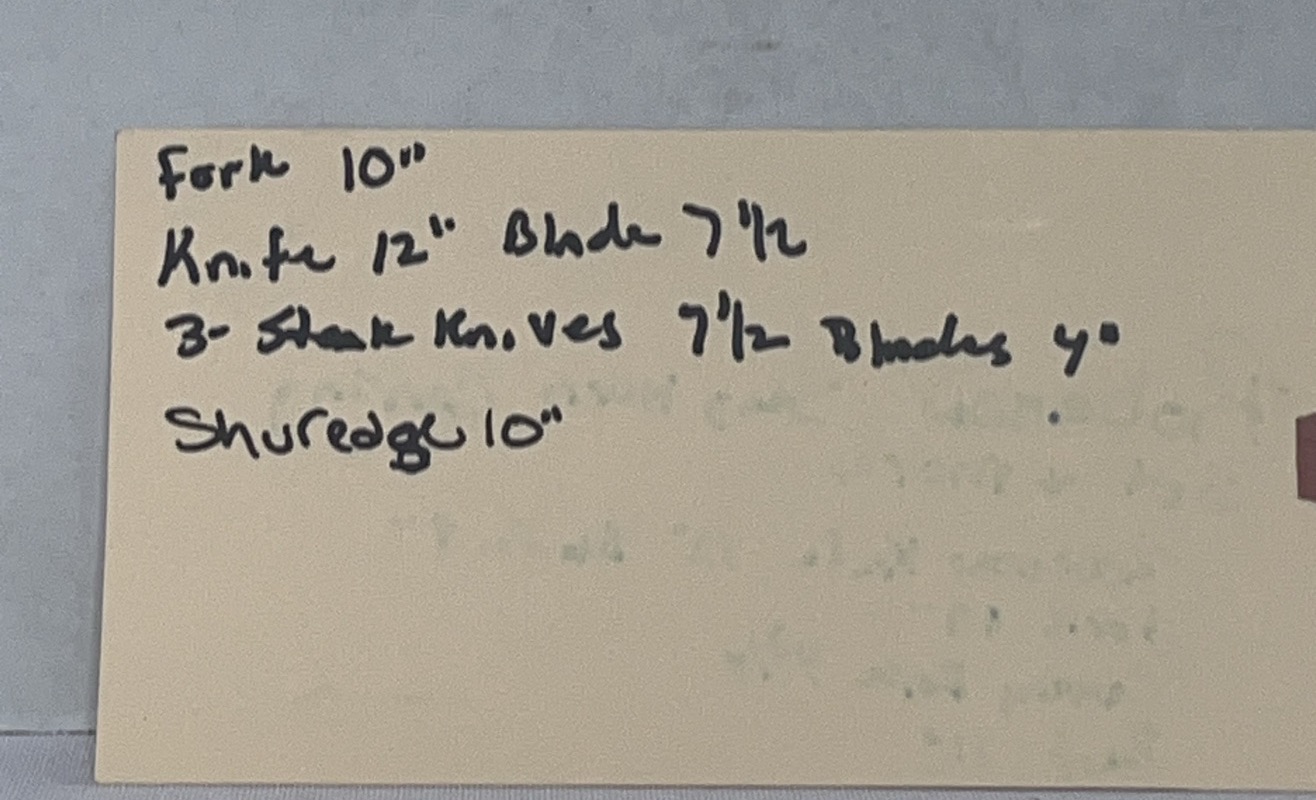 Fork 10"
Knife 12" Blade 7 1/2
3- Steak Knives 7 1/2 Blades 4"
Shuredge 10"